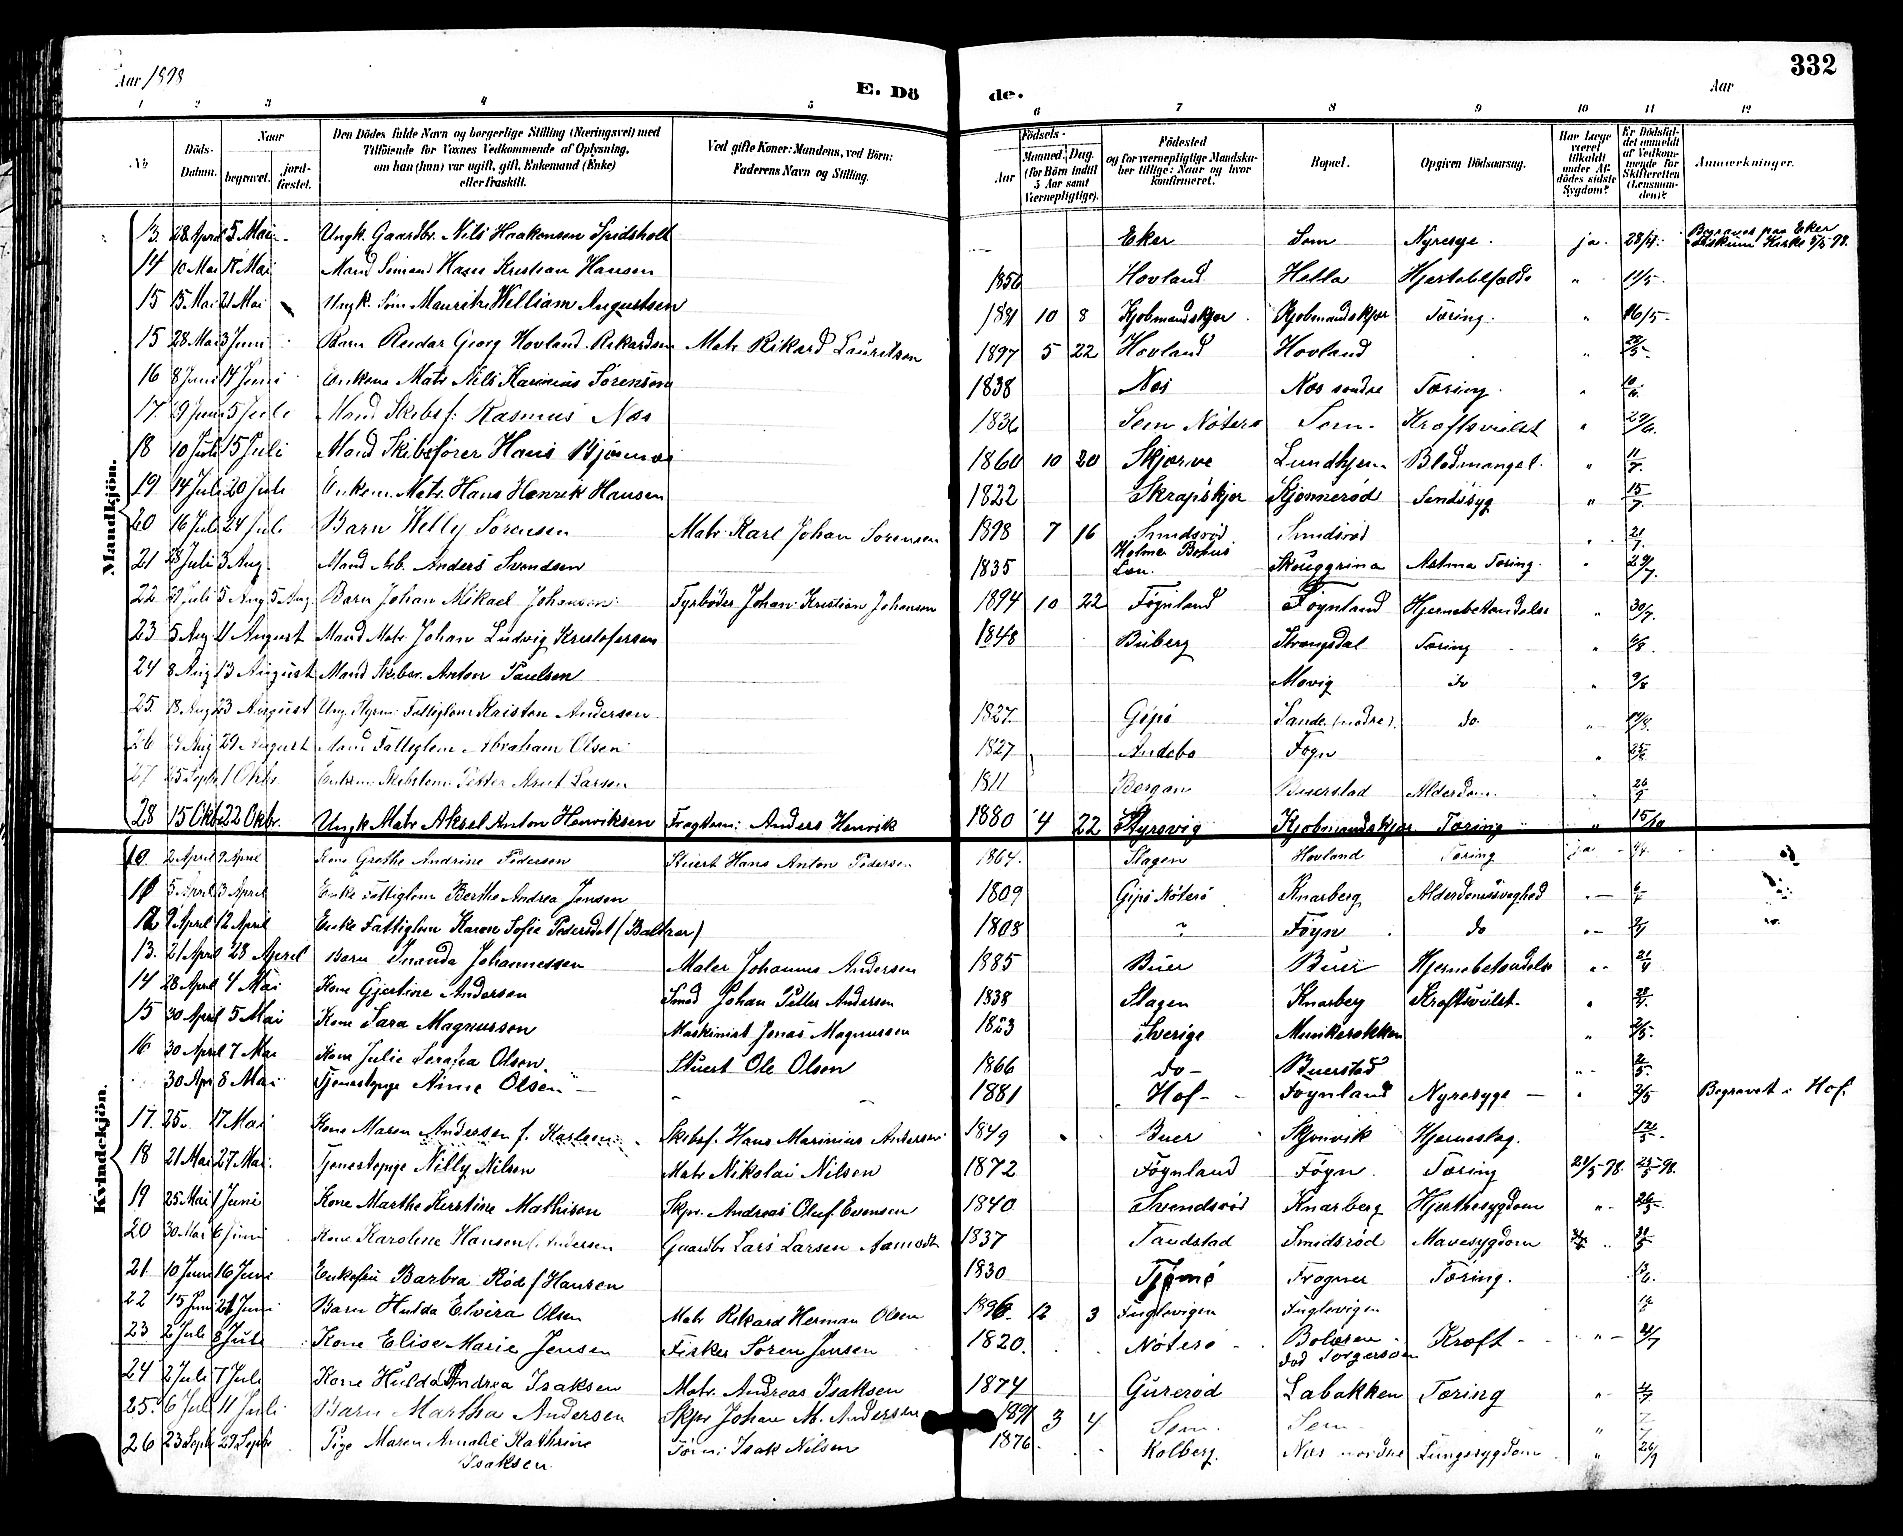 Aar 1898
E. Döde.
Aar
332
1 2 3 4 5 6 7 8 9 10 11 12
No
Döds-Datum.
Naar
begravet.
jord-fæstet.
Den Dödes fulde Navn og borgerlige Stilling (Næringsvei) med Tilföiende for Voxnes Vedkommende af Oplysning, om han (hun) var ugift, gift, Enkemand (Enke) eller fraskilt.
Ved gifte Koner: Mandens, ved Börn: Faderens Navn og Stilling.
Födsels-
Aar
Maaned. Dag.
(for Börn indtil 5 Aar samt Værnepligtige).
Födested og for værnepligtige Mandskaber tillige: Naar og hvor konfirmeret.
Bopæl.
Opgiven Dödsaarsag.
Har Læge været tilkaldt under Afdödes sidste Sygdom?
Er Dödsfaldet anmeldt af Vedkommende for Skifteretten (Lensmanden)?
Anmærkninger.
Mandkjön.
13. 28 April 5 Mai Ungk. Gaardbr. Nils Haakensen Spidsholt Eker Sem Nyresyge. ja. 28/4. Begravet paa Eker Kirke 5/5 98.
14 10 Mai 17 Mai Mand Sömand Hans Kristian Hansen 1856 Hovland Hella Hjerteblfælde " 11/5
15 15 Mai 21 Mai Ungk. Söm Mauritz William Augustsen 1881 10 8 Kjobmandskjær Kjobmandskjær Tæring. " 16/5
15 28 Mai 3 Juni Barn Reidar Georg Hovland Rikardsen Matr Rikard Lauritsen 1897 5 22 Hovland Hovland
16 8 Juni 14 Juni Enkem Matr Nils Karinius Sörensen 1838 Nes Nes söndre Tæring. "
17. 29 Juni 5 Juli Mand Skibsf: Rasmus Næs 1836 Sem Nöterö Sem. Kræftsvulst " 29/6.
18 10 Juli 15 Juli Mand Skibsförer Hans Bjönnes 1860 10 20 Skjærve Lundhjem Blodmangel. " 11/7
19 14 Juli 20 Juli Enkem. Matr. Hans Henrik Hansen 1822 Skrapskjer Kjönnerød Sindssyg " 15/7
20 16 Juli 24 Juli Barn Welly Sörensen Matr Karl Johan Sörensen 1898 7 16 Smidsröd Smidsröd " 21/7
21 28 Juli 3 Aug. Mand Arb. Anders Svendsen 1835 Holmer Bohus Len. Skouggrina Astma Tæring. " 29/7.
22 29 Juli 5 Aug 5 Aug. Barn Johan Mikael Johansen Fyrböder Johan Kristian Johansen 1894 10 22 Föynland Föynland Hjernebetændelse " 30/7.
23 5 Aug 11 August Mand Matr. Johan Ludvig Kristofersen 1848 Buberg Strengsdal Tæring " 6/8.
24 8 Aug 13 August Mand Anton Paulsen Movig do " 9/8
25. 18 Aug 23 August Ung. Fattiglem Kristen Andersen 1827. Gipö Sande (nedre). do.
26 Aug 29 August Mand Fattiglem Abraham Olsen 1827 Andebo Föyn "
27 25 Septr 1 Oktr Enkem Skibstöm. Petter Arnt Larsen 1811 Bergan Buerstad Alderdom. "
28 15 Oktr 22 Okbr. Ungk Matr Aksel Anton Henriksen Fragtem: Anders Henrik 1880 4 22 Styrsvig Kjobmandskjær Tæring " 15/10
Kvindekjön.
10. 2 April 9 April Kone Grethe Andrine Pedersen Stuert Hans Anton Pedersen 1864. Slagen Hovland Tæring ja 4/4.
11 5 April 13 April Enke Fattiglem Berthe Andrea Jensen 1809 Gipö Nöterö Knarberg Alderdomssvaghed
12 9 April 12 April Enke Fattiglem Karen Sofie Pedersdet (Baltzer) 1808 " Föyn do
13. 21 April 28 April Barn Inanda Johannessen Maler Johannes Andersen 1885 Buer Buer Hjernebetændelse " 21/4
14 28 April 4 Mai Kone Gjertine Andersen Smed Johan Petter Andersen 1838 Slagen Knarberg Kræftsvulst. "
15 30 April 5 Mai Kone Sara Magnusson Maskinist Jonas Magnussen 1853 Sverige Munkerekken " 2/5.
16 30 April 7 Mai Kone Julie Serafia Olsen. Stuert Ole Olsen 1866 do Buerstad " 2/5.
30 Apr 8 Mai Tjenestepige Nime Olsen 1881 Hof Föynland Nyresyge " 2/5 Begravet i Hof.
17. 25. 17 Mai Kone Maren Andersen f. Karlsen Skibsf. Hans Marinius Andersen 1849 Buer Skjönvik Hjerneslag.
18 21 Mai 27 Mai. Tjenestepige Nilly Nilsen Matr Nikolai Nilsen 1872 Föynland Föyn. Tæring 21/5 98. 23/5 98.
19 25 Mai 1 Juni Kone Marthe Kirstine Mathisen Skpr. Andreas Oluf Evensen 1840 Svendsröd Knarberg Hjerthesygdom " 26/5.
20 30 Mai 6 Juni Kone Karoline Hansen f. Andersen Gaardbr Lars Larsen Aamodt 1837 Tandstad Smidsröd Mavesygdom
21. 10 Juni 16 Juni Enkefru Barbra Röd f Hansen 1830 Tjømö Frogner Tæring.
22 15 Juni 21 Juni Barn Hulda Elvira Olsen Matr Rikard Herman Olsen 1896. 12 3 Fuglevigen Fuglevigen
23 2 Juli 8 Juli Kone Elise Marie Jensen Fisker Sören Jensen 1820. Nöterö Bolæren Kræft " 2/7
24 2 Juli 7 Juli Kone Hulda Andrea Isaksen Matr. Andreas Isaksen 1874 Gurerød Labakken Tæring "
25. 6 Juli 11 Juli Barn Martha Andersen Skpr Johan M. Andersen 1891 3 4 Sem. Sem "
26 23 Septr 29 Septr Pige Maren Amalie Kathrine Isaksen Töm: Isak Nilsen 1876. Kolberg. Næs nordre Lungesygdom " 26/9